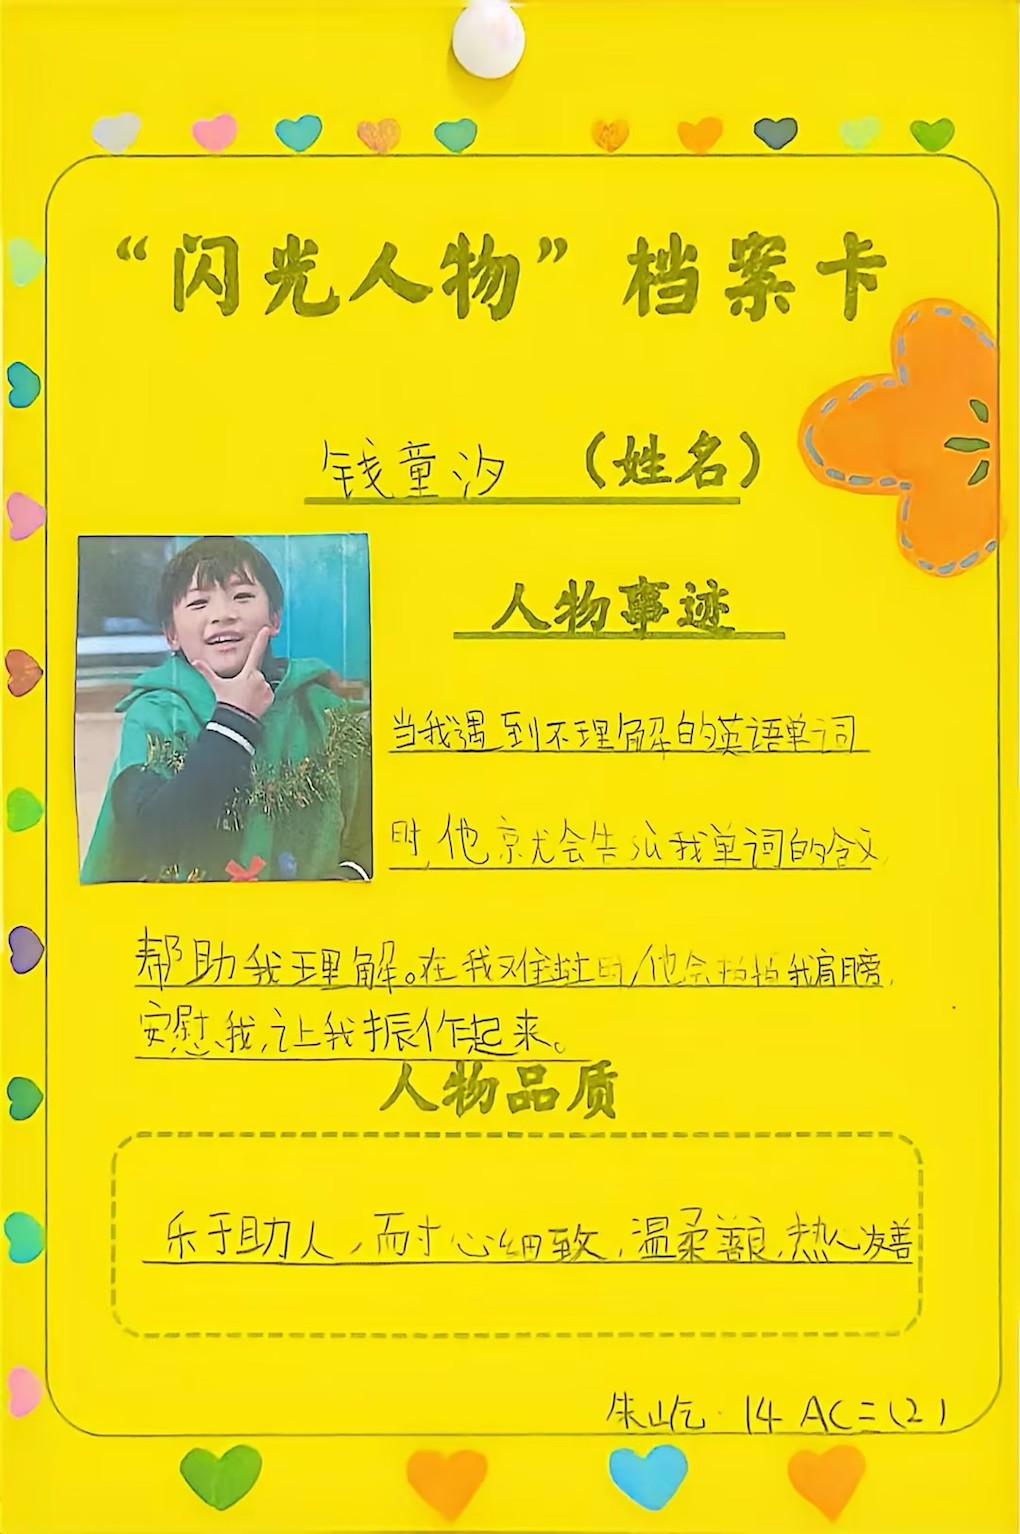 “闪光人物”档案卡
钱童汐（姓名）
人物事迹
当我遇到不理解的英语单词
时,他就会告诉我单词的含义,
帮助我理解。在我难过时,他会拍拍我肩膀,
安慰我,让我振作起来。
人物品质
乐于助人,耐心细致,温柔善良,热心友善
朱屹·14 AC二(2)